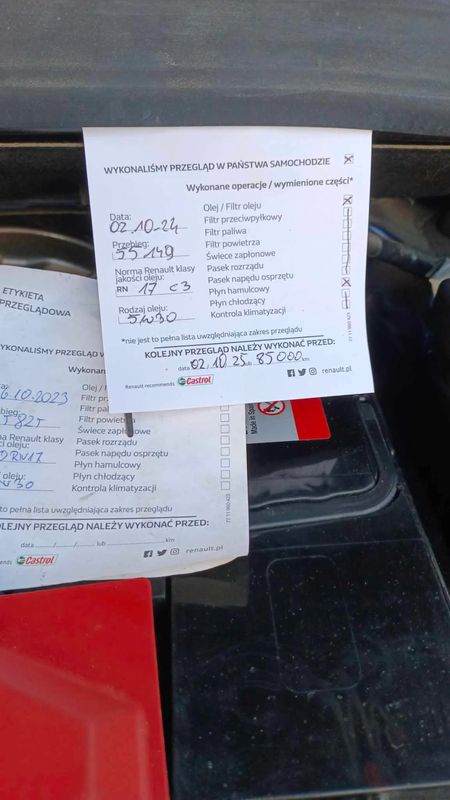 WYKONALIŚMY PRZEGLĄD W PAŃSTWA SAMOCHODZIE
Wykonane operacje / wymienione części*
Data:
02.10-24
Przebieg:
55149
Norma Renault klasy
jakości oleju:
RN 17 C3
Rodzaj oleju:
5W30
Olej / Filtr oleju
Filtr przeciwpyłkowy
Filtr paliwa
Filtr powietrza
Świece zapłonowe
Pasek rozrządu
Pasek napędu osprzętu
Płyn hamulcowy
Płyn chłodzący
Kontrola klimatyzacji
*nie jest to pełna lista uwzględniająca zakres przeglądu
KOLEJNY PRZEGLĄD NALEŻY WYKONAĆ PRZED:
data 02.10 25 lub 85000 km
Renault recommends Castrol
renault.pl
77 11 960 423
Made in Spain
ETYKIETA
PRZEGLĄDOWA
YKONALIŚMY PRZEGLĄD W
Wykonan
6.10.2023
bieg:
a Renault klasy
ci oleju:
RN17
oleju:
W30
Olej / F
Filtr prz
Filtr pal
Filtr powietrz
Świece zapłonowe
Pasek rozrządu
Pasek napędu osprzętu
Płyn hamulcowy
Płyn chłodzący
Kontrola klimatyzacji
to pełna lista uwzględniająca zakres przeglądu
OLEJNY PRZEGLĄD NALEŻY WYKONAĆ PRZED:
data ..../..../.... lub .... km
mmends Castrol
renault.pl
77 11 960 423